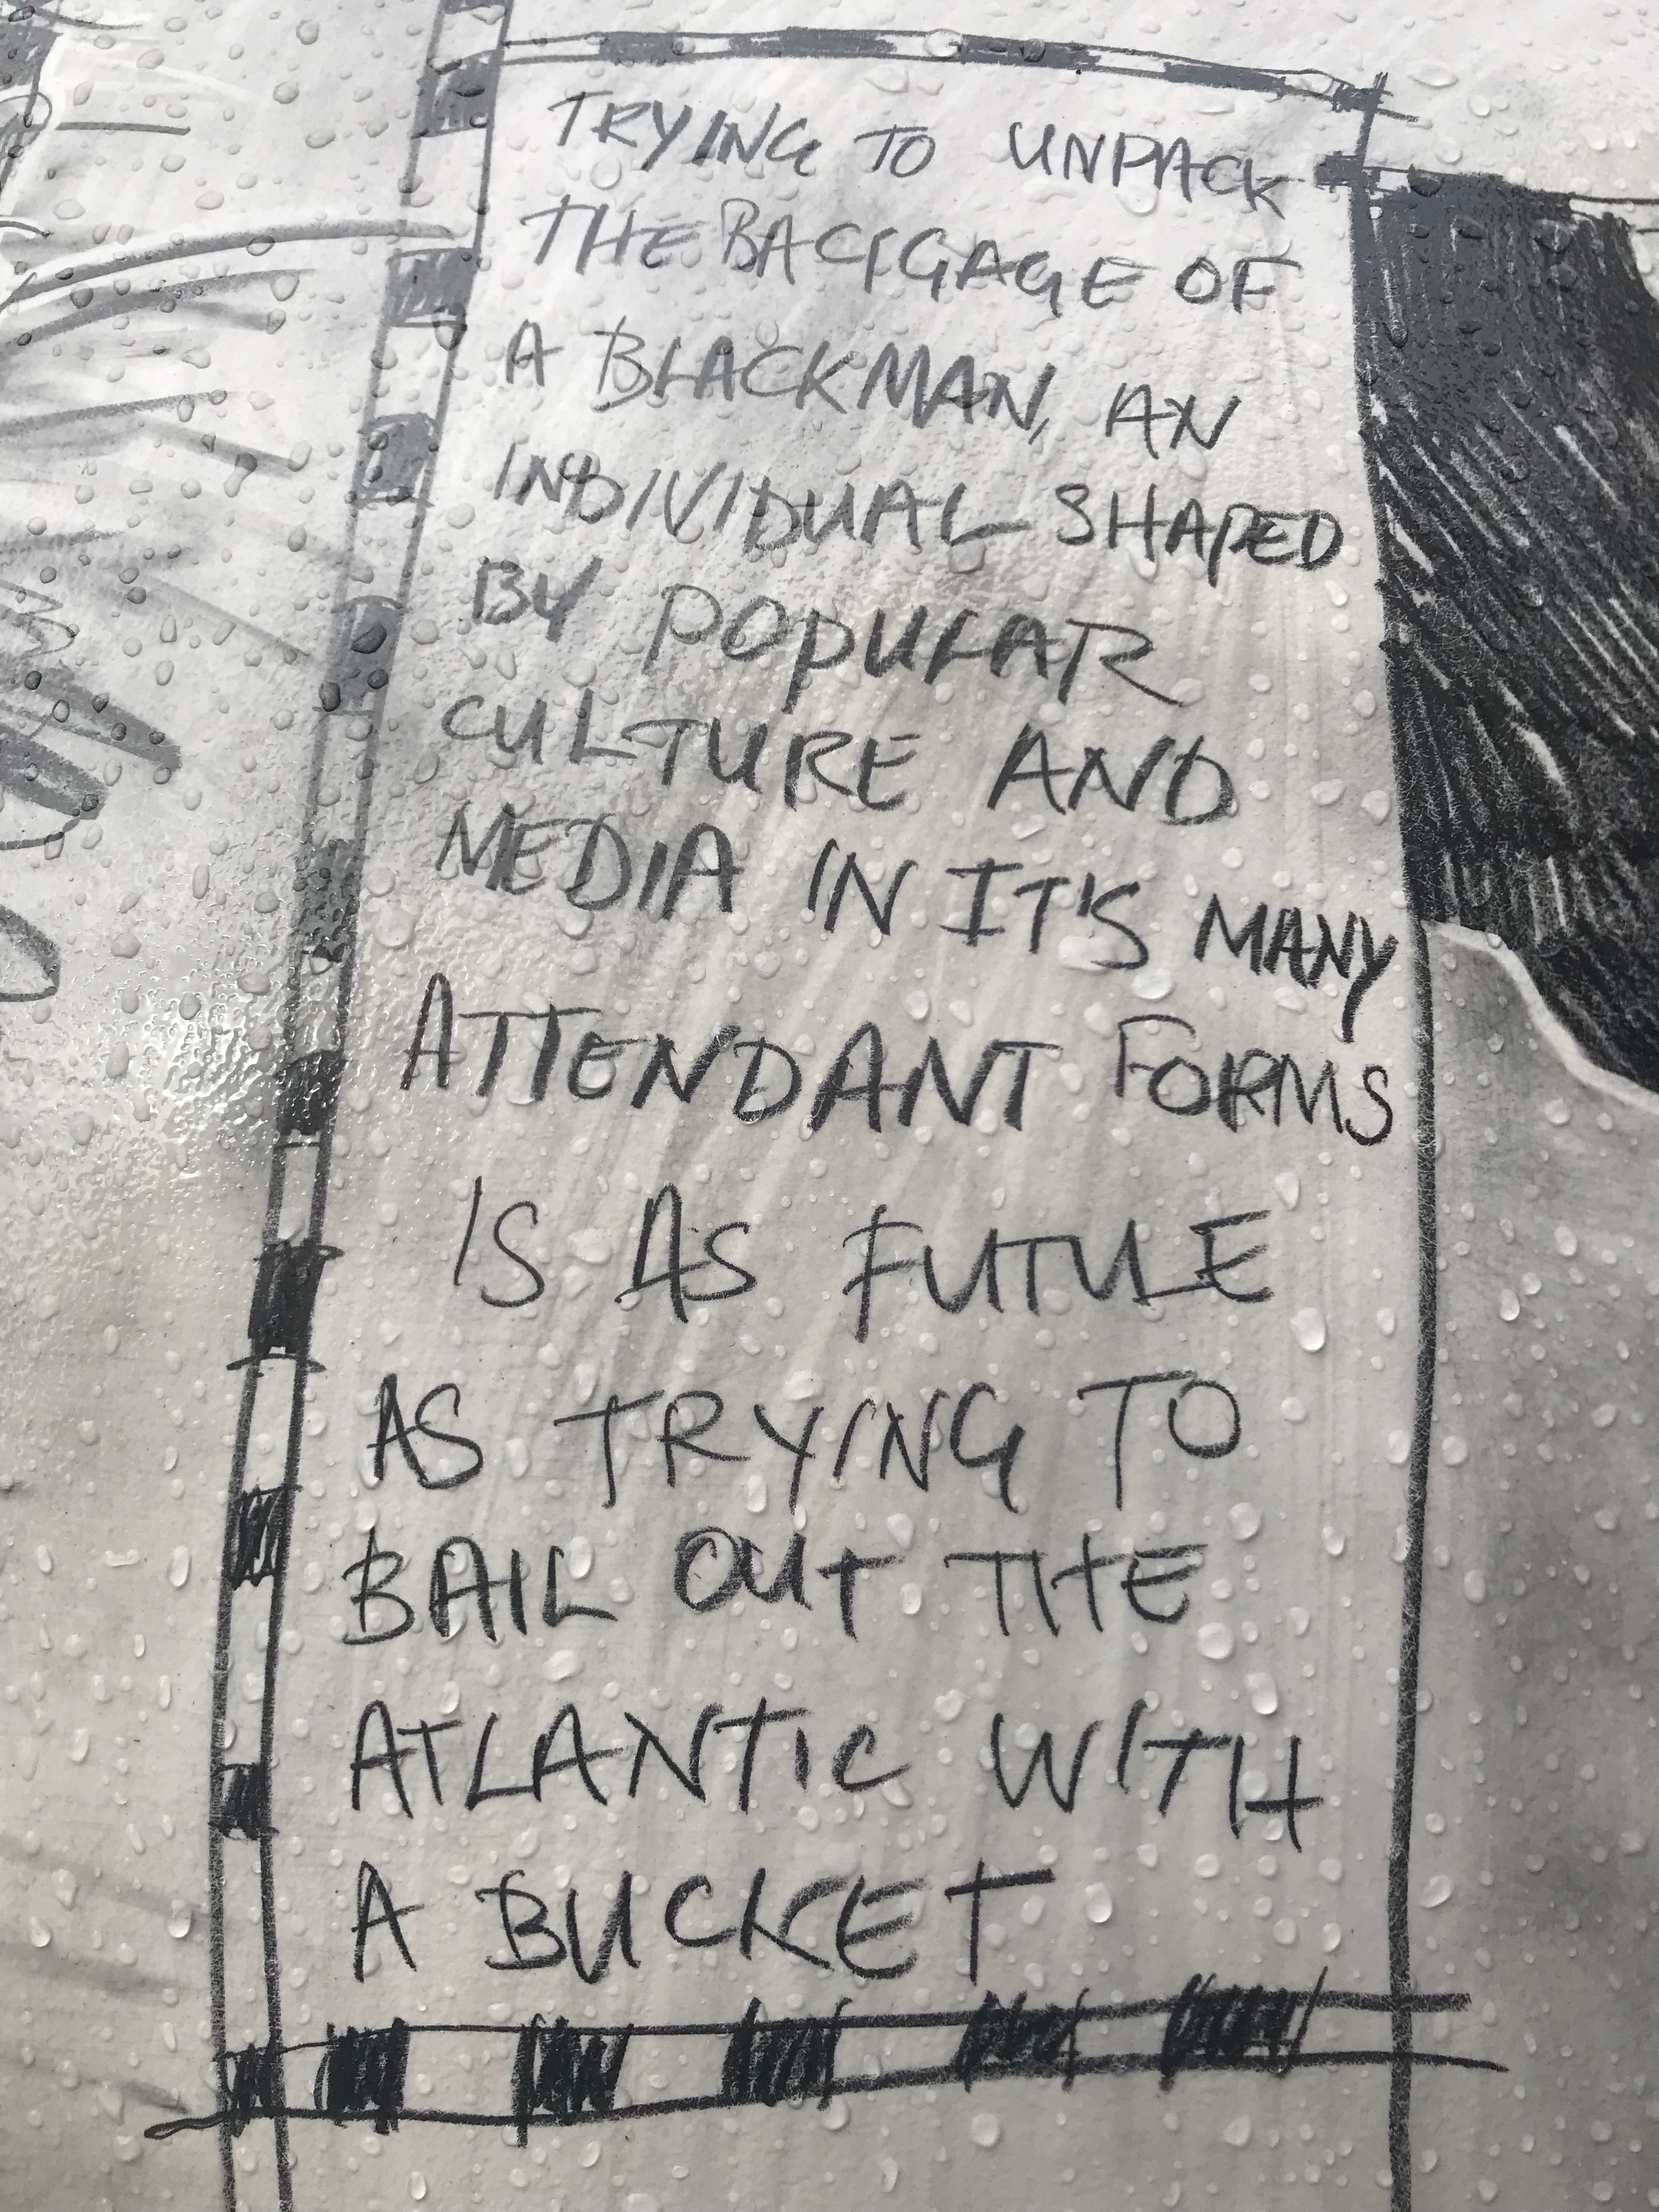 TRYING TO UNPACK
THE BAGGGAGE OF
A BLACKMAN, AN
INDIVIDUAL SHAPED
BY POPULAR
CULTURE AND
MEDIA IN IT'S MANY
ATTENDANT FORMS
IS AS FUTILE
AS TRYING TO
BAIL OUT THE
ATLANTIC WITH
A BUCKET